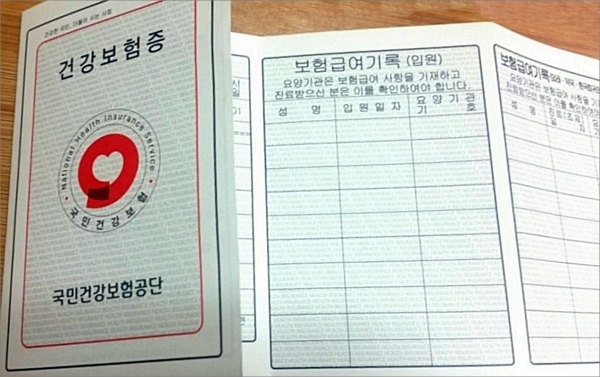 건강한 국민, 더불어 사는 사회
건강보험증
National Health Insurance Service
국민건강보험
국민건강보험공단
보험급여기록 (입원)
요양기관은 보험급여 사항을 기재하고
진료받으신 분은 이를 확인하여야 합니다.
성 명 입원일자 요양기관
기 호
보험급여기록
요양기관은 보험급여 사항을 기
진료받으신 분은 이를 확인하여야
성 명 진료(조제) 요
일 자 기